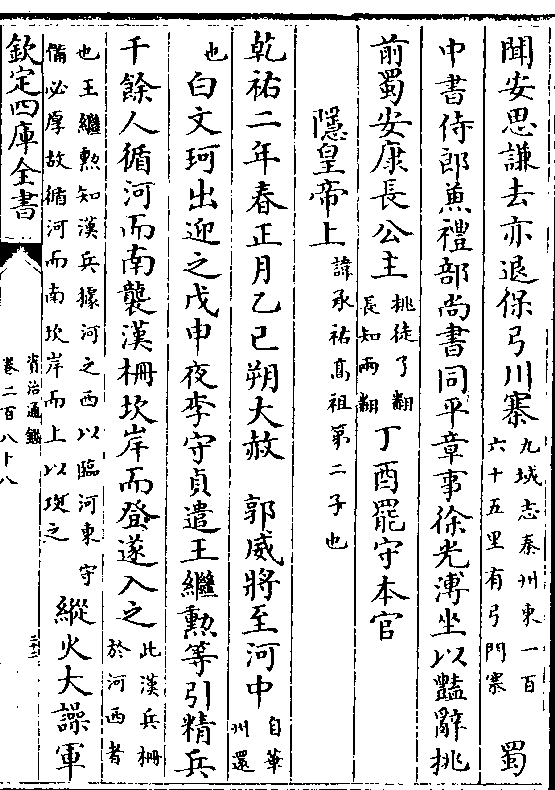 聞安思謙去亦退保弓川寨九域志秦州東一百六十五里有弓門寨蜀
中書侍郎兼禮部尚書同平章事徐光溥坐以豔辭挑
前蜀安康長公主挑徒了翻長知兩翻丁酉罷守本官
隱皇帝上諱承祐高祖第二子也
乾祐二年春正月乙巳朔大赦 郭威將至河中自華州還
也白文珂出迎之戊申夜李守貞遣王繼勲等引精兵
千餘人循河而南襲漢柵坎岸而登遂入之此漢兵柵於河西者
也王繼勲知漢兵據河之西以臨河東守備必厚故循河而南坎岸而上以攻之縱火大譟軍
欽定四庫全書
資治通鑑
卷二百八十八